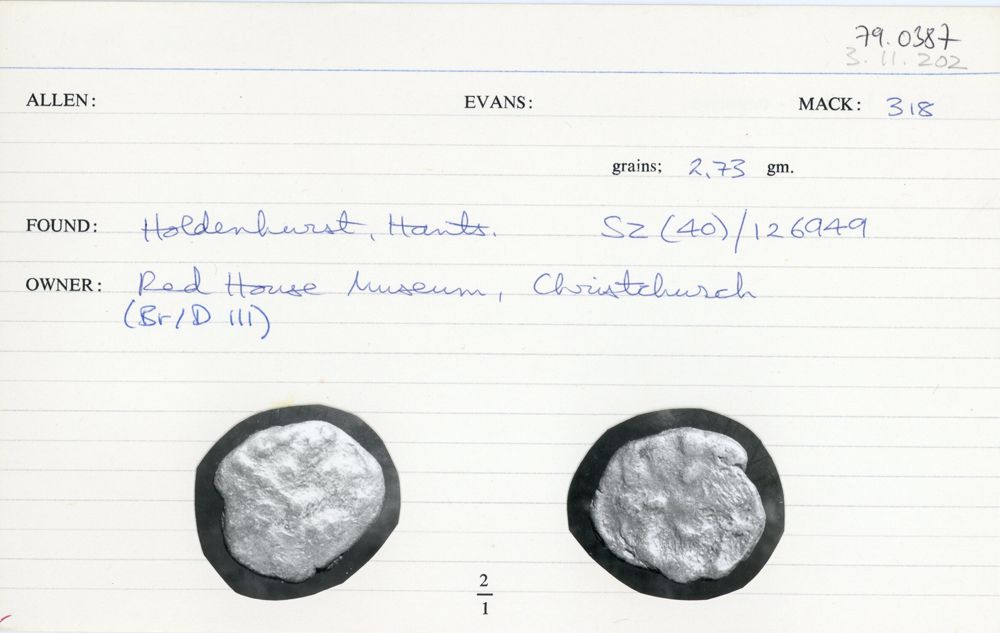 79.0387
3.11.202
ALLEN: EVANS: MACK: 318
grains; 2.73 gm.
FOUND: Holdenhurst, Hants. SZ (40)/126949
OWNER: Red House Museum, Christchurch
(Br/D III)
2
1